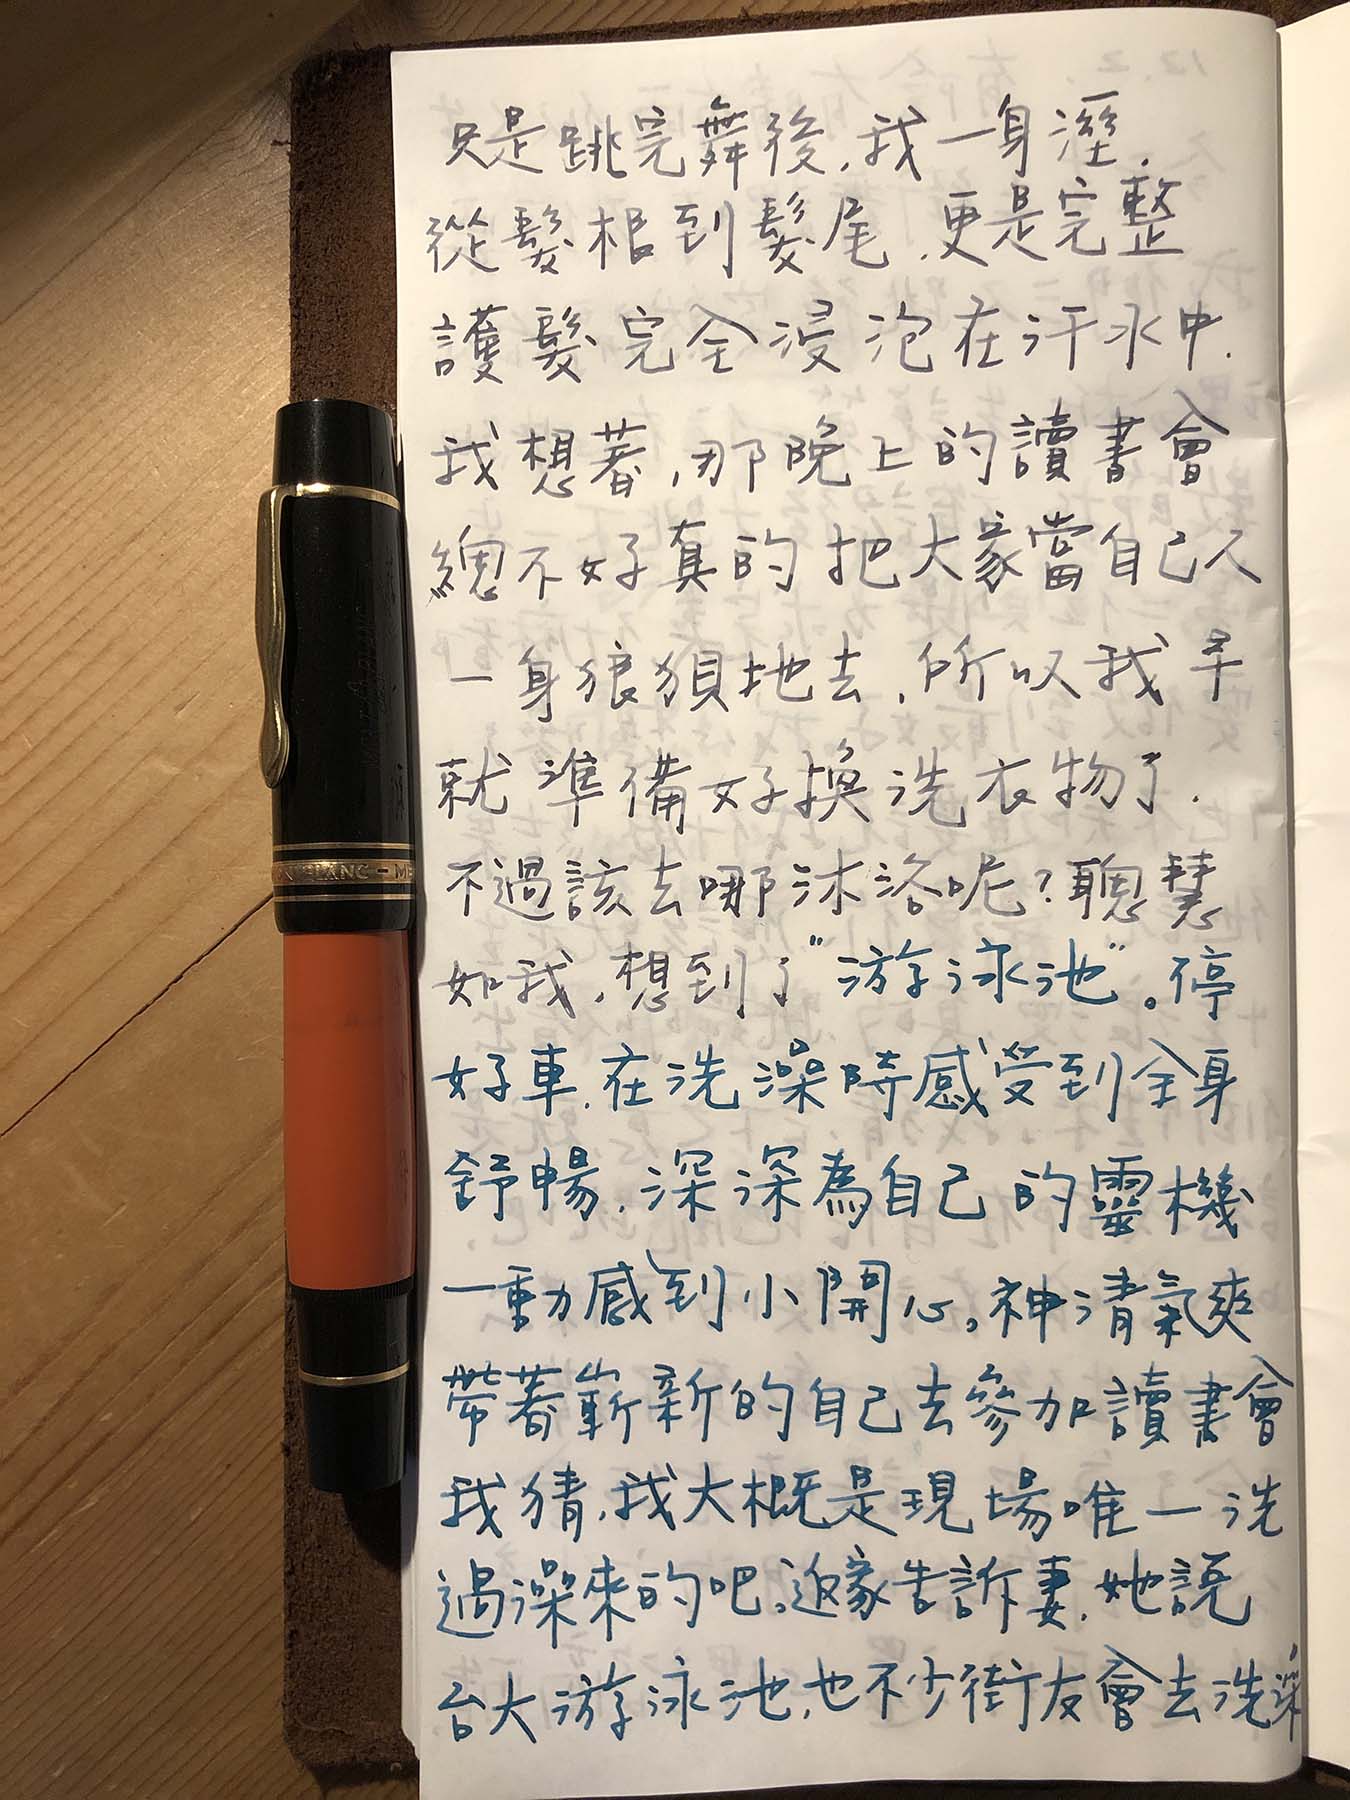 只是跳完舞後,我一身溼.
從髮根到髮尾,更是完整
護髮完全浸泡在汗水中.
我想著,那晚上的讀書會
總不好真的把大家當自己人
一身狼狽地去,所以我早
就準備好換洗衣物了.
不過該去哪沐浴呢?聰慧
如我,想到了"游泳池"。停
好車,在洗澡時感受到全身
舒暢,深深為自己的靈機
一動感到小開心。神清氣爽
帶著嶄新的自己去參加讀書會
我猜,我大概是現場唯一洗
過澡來的吧。返家告訴妻,她說
台大游泳池,也不少街友會去洗澡
BLANC – ME